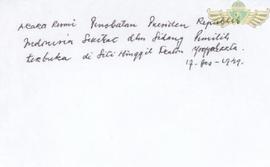 Acara Resmi Penobatan Presiden Republik
Indonesia Serikat dlm Sidang Pemilih
terbuka di Siti Hinggil Kraton Yogyakarta.
17 Des - 1949.